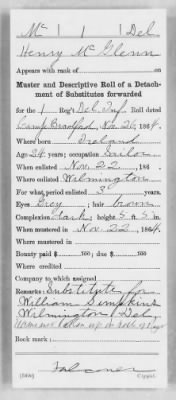 Mc | 1 | Del
Henry McGlenn
Appears with rank of
Muster and Descriptive Roll of a Detach-
ment of Substitutes forwarded
for the 1 Reg't Del. Inf. Roll dated
Camp Bradford, Nov. 26, 1864.
Where born Ireland
Age 24 years; occupation Sailor
When enlisted Nov. 22, 186 .
Where enlisted Wilmington
For what period enlisted 3 years.
Eyes Grey; hair brown
Complexion dark; height 5 ft. 5 in.
When mustered in Nov. 22, 1864.
Where mustered in
Bounty paid $ 100; due $ 100
Where credited
Company to which assigned
Remarks: Substitute for
William Simpkins
Wilmington, Del.
Name not taken up on rolls of Regt
Book mark:
(340c) Copyist.